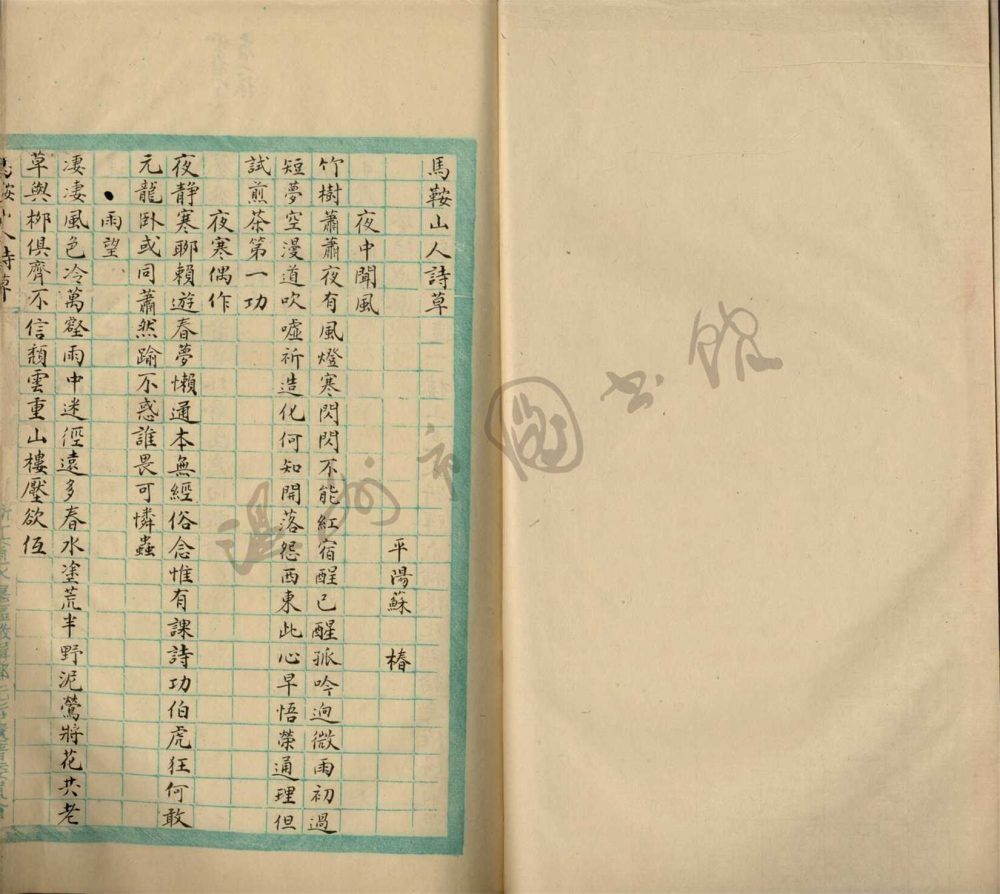 馬鞍山人詩草
平陽蘇　椿
夜中聞風
竹樹蕭蕭夜有風燈寒閃閃不能紅宿酲已醒孤吟迥微雨初過
短夢空漫道吹噓祈造化何知開落怨西東此心早悟榮通理但
試煎茶第一功
夜寒偶作
夜静寒聊賴遊春夢懶通本無經俗念惟有課詩功伯虎狂何敢
元龍卧或同蕭然踰不惑誰畏可憐蟲
雨望
凄凄風色冷萬壑雨中迷徑遠多春水塗荒半野泥鶯將花共老
草與栁俱齊不信頹雲重山樓壓欲低
馬鞍山人詩草
溫州市圖书館